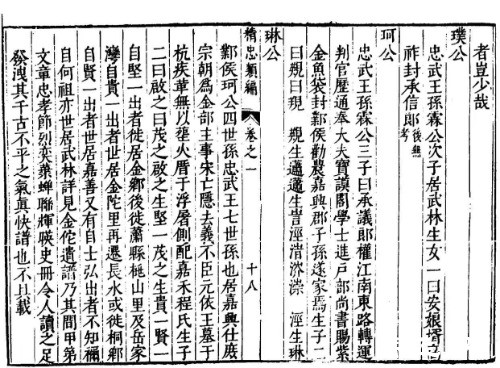 者豈少哉
璞公
忠武王孫霖公次子居武林生女一曰安娘壻
祚封承信郎後無考
珂公
忠武王孫霖公三子曰承議郎權江南東路轉運
判官歷通奉大夫寶謨閣學士進戶部尚書賜紫
金魚袋封鄴侯勸農嘉興郡子孫遂家焉生子二
曰覲曰現 覲生邁邁生 涇 涇生琳
精忠類編 卷之一 十八
琳公
鄴侯珂公四世孫忠武王七世孫也居嘉興仕度
宗朝為金部主事宋亡隱去義不臣元依王墓于
杭疾革無以塟火厝于浮屠側配嘉禾程氏生子
二曰啟之曰茂之啟之生堅一茂之生貴一賢一
自堅一出者徙居金鄉後徙蕭縣桃山里及岳家
灣自貴一出者世居金陀里再遷長水或徙桐鄉
自賢一出者世居嘉善又有自士弘出者不知禰
自何祖亦世居武林詳見金陀遺譜乃其間甲第
文章忠孝節烈奕葉蟬聯輝暎史冊令人讀之足
發洩其千古不平之氣真快譜也不具載